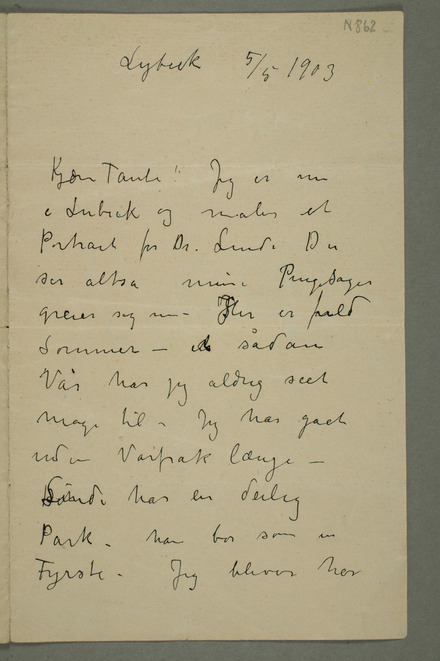 N 862
Lybeck 5/5 1903
Kjære Tante! Jeg er nu
i Lübeck og maler et
Portræt for Dr. Linde Du
ser altsa mine Pengesager
greier sig nu – Her er fuld
Sommer – sådan
Vår har jeg aldrig seet
mage til – Jeg har gaet
uden Varfrak længe –
Linde har en deilig
Park – han bor som en
Fyrste – Jeg bliver her